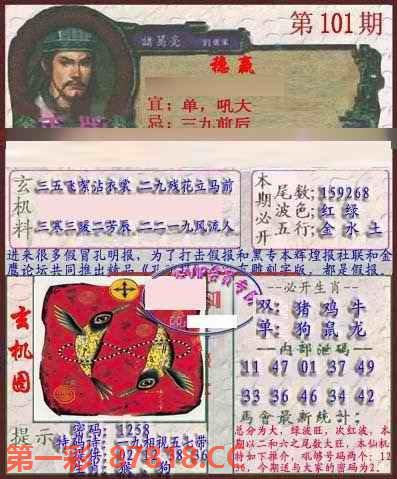 第101期
諸葛亮
穩贏
宣：单，吼大
忌：三九前后
玄机料
三五飞絮沾衣裳 二九残花立马前
三寒三暖二芳辰 二二一九风流人
本期必开
尾数;159268
波色;红 绿
五行;金 水 土
进来很多假冒孔明报，为了打击假报和黑专本辉煌报社联和金
鹰论坛共同推出精品
都是假报
玄机图
必开生肖
双：猪 鸡 牛
单：狗 鼠 龙
内部泄码
11 47 01 37 49
33 36 46 34 42
馬會最新統計：
总分为大，绿波旺，次红波，本
期以二和六之尾数大旺，本仙机
提示
密码：1258
特码诗：一九相视五七带
第一彩.87818.CC